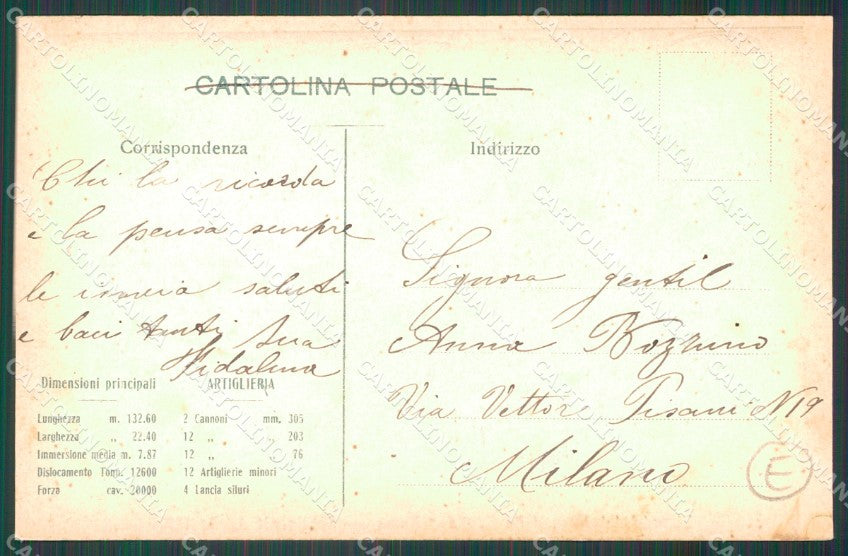 CARTOLINA POSTALE
Corrispondenza
Chi la ricorda
e la pensa sempre
le invia saluti
e baci tanti Sua
Fidalma
Dimensioni principali
Lunghezza m. 132.60
Larghezza „ 22.40
Immersione media m. 7.87
Dislocamento Tonn. 12600
Forza cav. 20000
ARTIGLIERIA
2 Cannoni mm. 305
12 „ 203
12 „ 76
12 Artiglierie minori
4 Lancia siluri
Indirizzo
Signora gentil
Anna
Via Vettor Pisani N 19
Milano
E
CARTOLINOMANIA